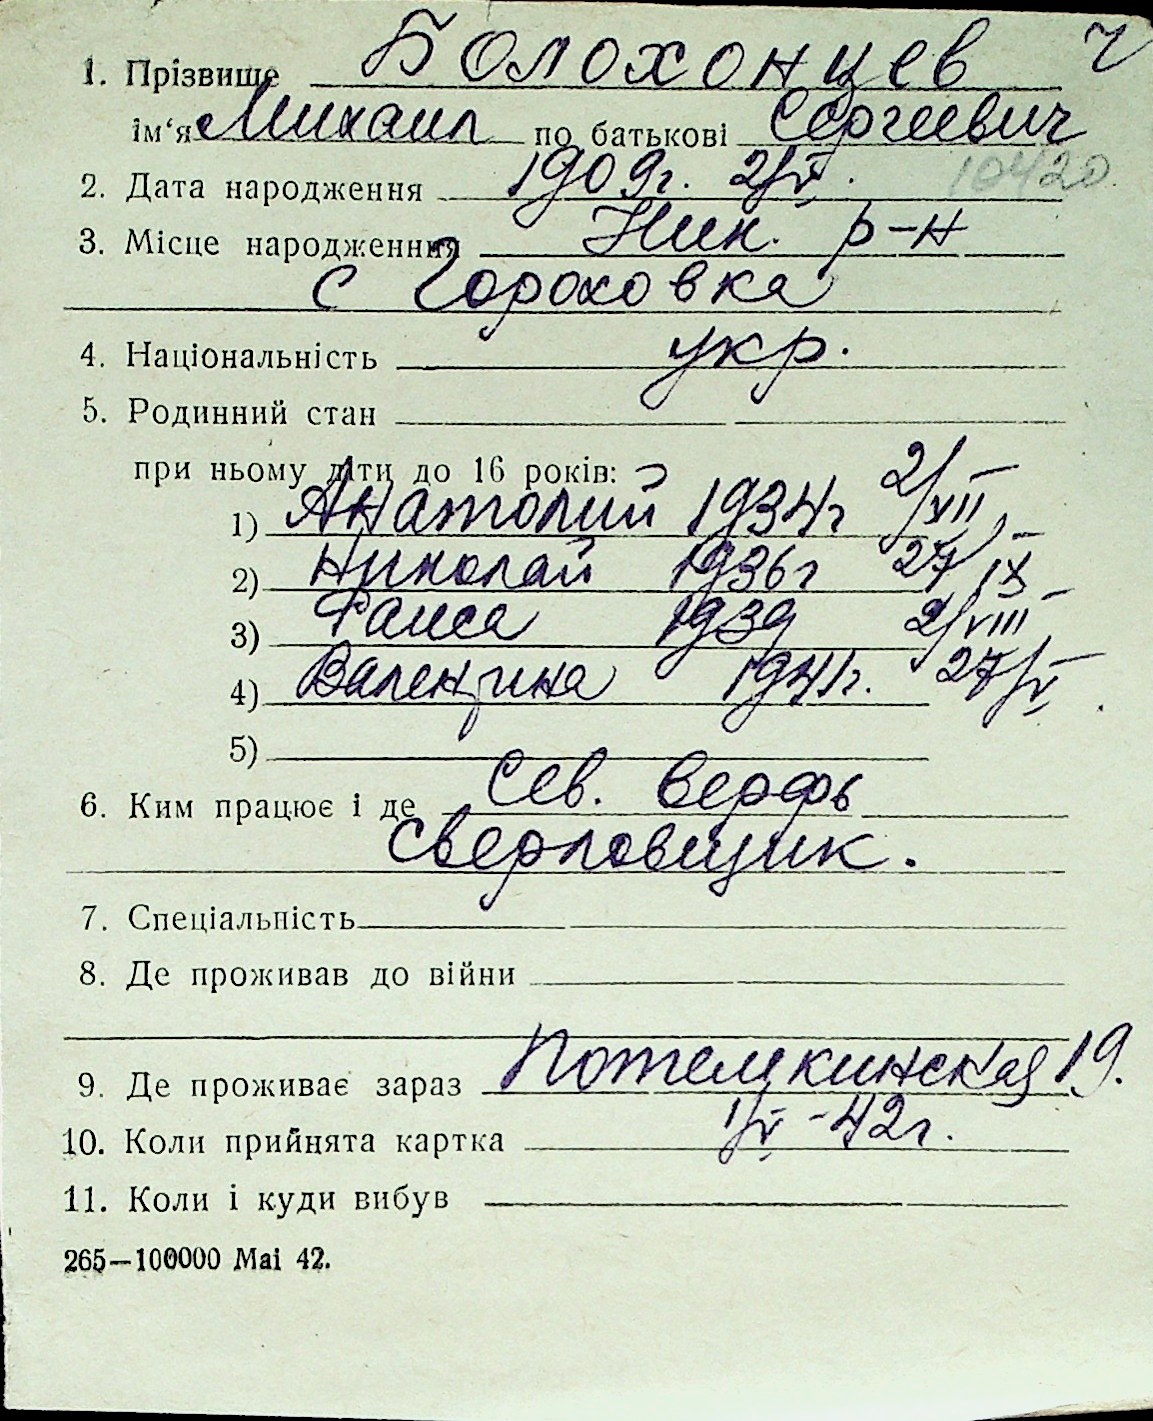 ч
1. Прізвище Болохонцев
ім‘я Михаил по батькові Сергеевич
2. Дата народження 1909г. 2/V.
10420
3. Місце народженння Ник. р-н
с Гороховка
4. Національність укр.
5. Родинний стан
при ньому діти до 16 років:
1) Анатолий 1934г 2/XII
2) Николай 1936г 27/IX
3) Раиса 1939 2/VIII
4) Валентина 1941г. 27/V.
5)
6. Ким працює і де Сев. верфь
сверловщик.
7. Спеціальність
8. Де проживав до війни
9. Де проживає зараз Потемкинская 19.
10. Коли прийнята картка 1/V-42г.
11. Коли і куди вибув
265—100000 Mai 42.